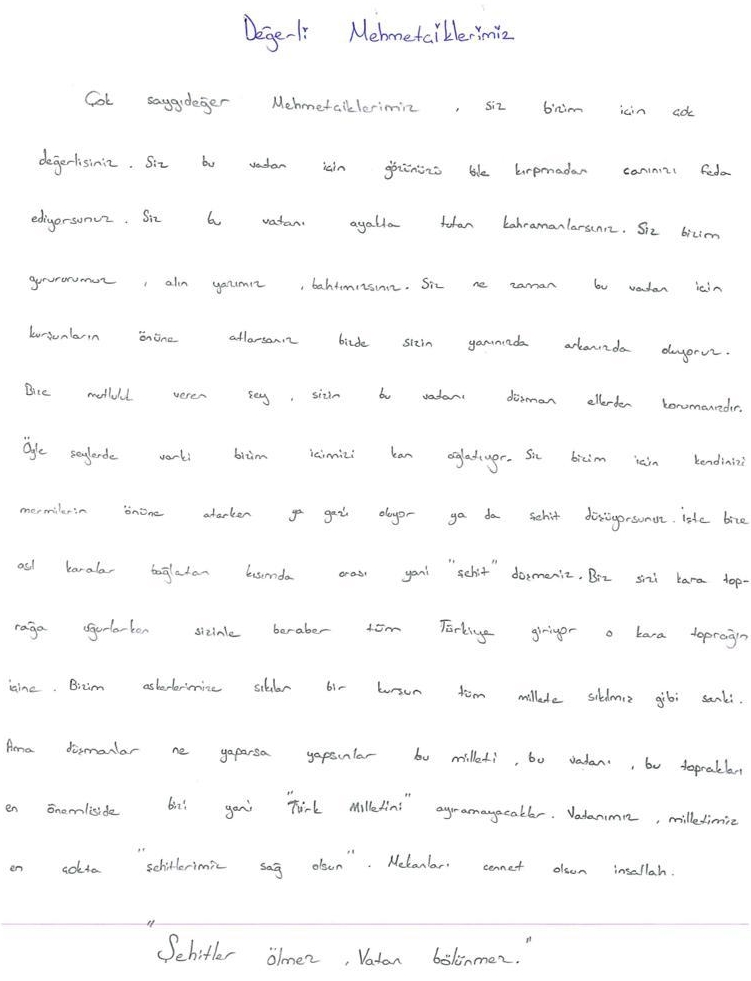 Değerli Mehmetciklerimiz
Çok saygıdeğer Mehmetciklerimiz , siz bizim için çok
değerlisiniz . Siz bu vadan için gözünüzü bile kırpmadan canınızı feda
ediyorsunuz . Siz bu vatanı ayakta tutan kahramanlarsınız. Siz bizim
gurururumuz , alın yazımız , bahtımızsınız. Siz ne zaman bu vadan için
kurşunların önüne atlarsanız bizde sizin yanınızda arkanızda oluyoruz.
Bize mutluluk veren şey , sizin bu vadanı düşman ellerden korumanızdır.
Öyle şeylerde varki bizim içimizi kan ağlatıyor. Siz bizim için kendinizi
mermilerin önüne atarken ya gazi oluyor ya da şehit düşüyorsunuz. İşte bize
asıl karalar bağlatan kısımda orası yani "şehit" düşmeniz. Biz sizi kara top-
rağa uğurlarken sizinle beraber tüm Türkiye giriyor o kara toprağın
içine . Bizim askerlerimize sıkılan bir kurşun tüm millede sıkılmız gibi sanki .
Ama düşmanlar ne yaparsa yapsınlar bu milleti , bu vadanı , bu toprakları
en önemliside bizi yani "Türk Milletini" ayıramayacaklar. Vatanımız , milletimiz
en çokta "şehitlerimiz sağ olsun" . Mekanları cennet olsun inşallah .
"Şehitler ölmez , Vatan bölünmez."